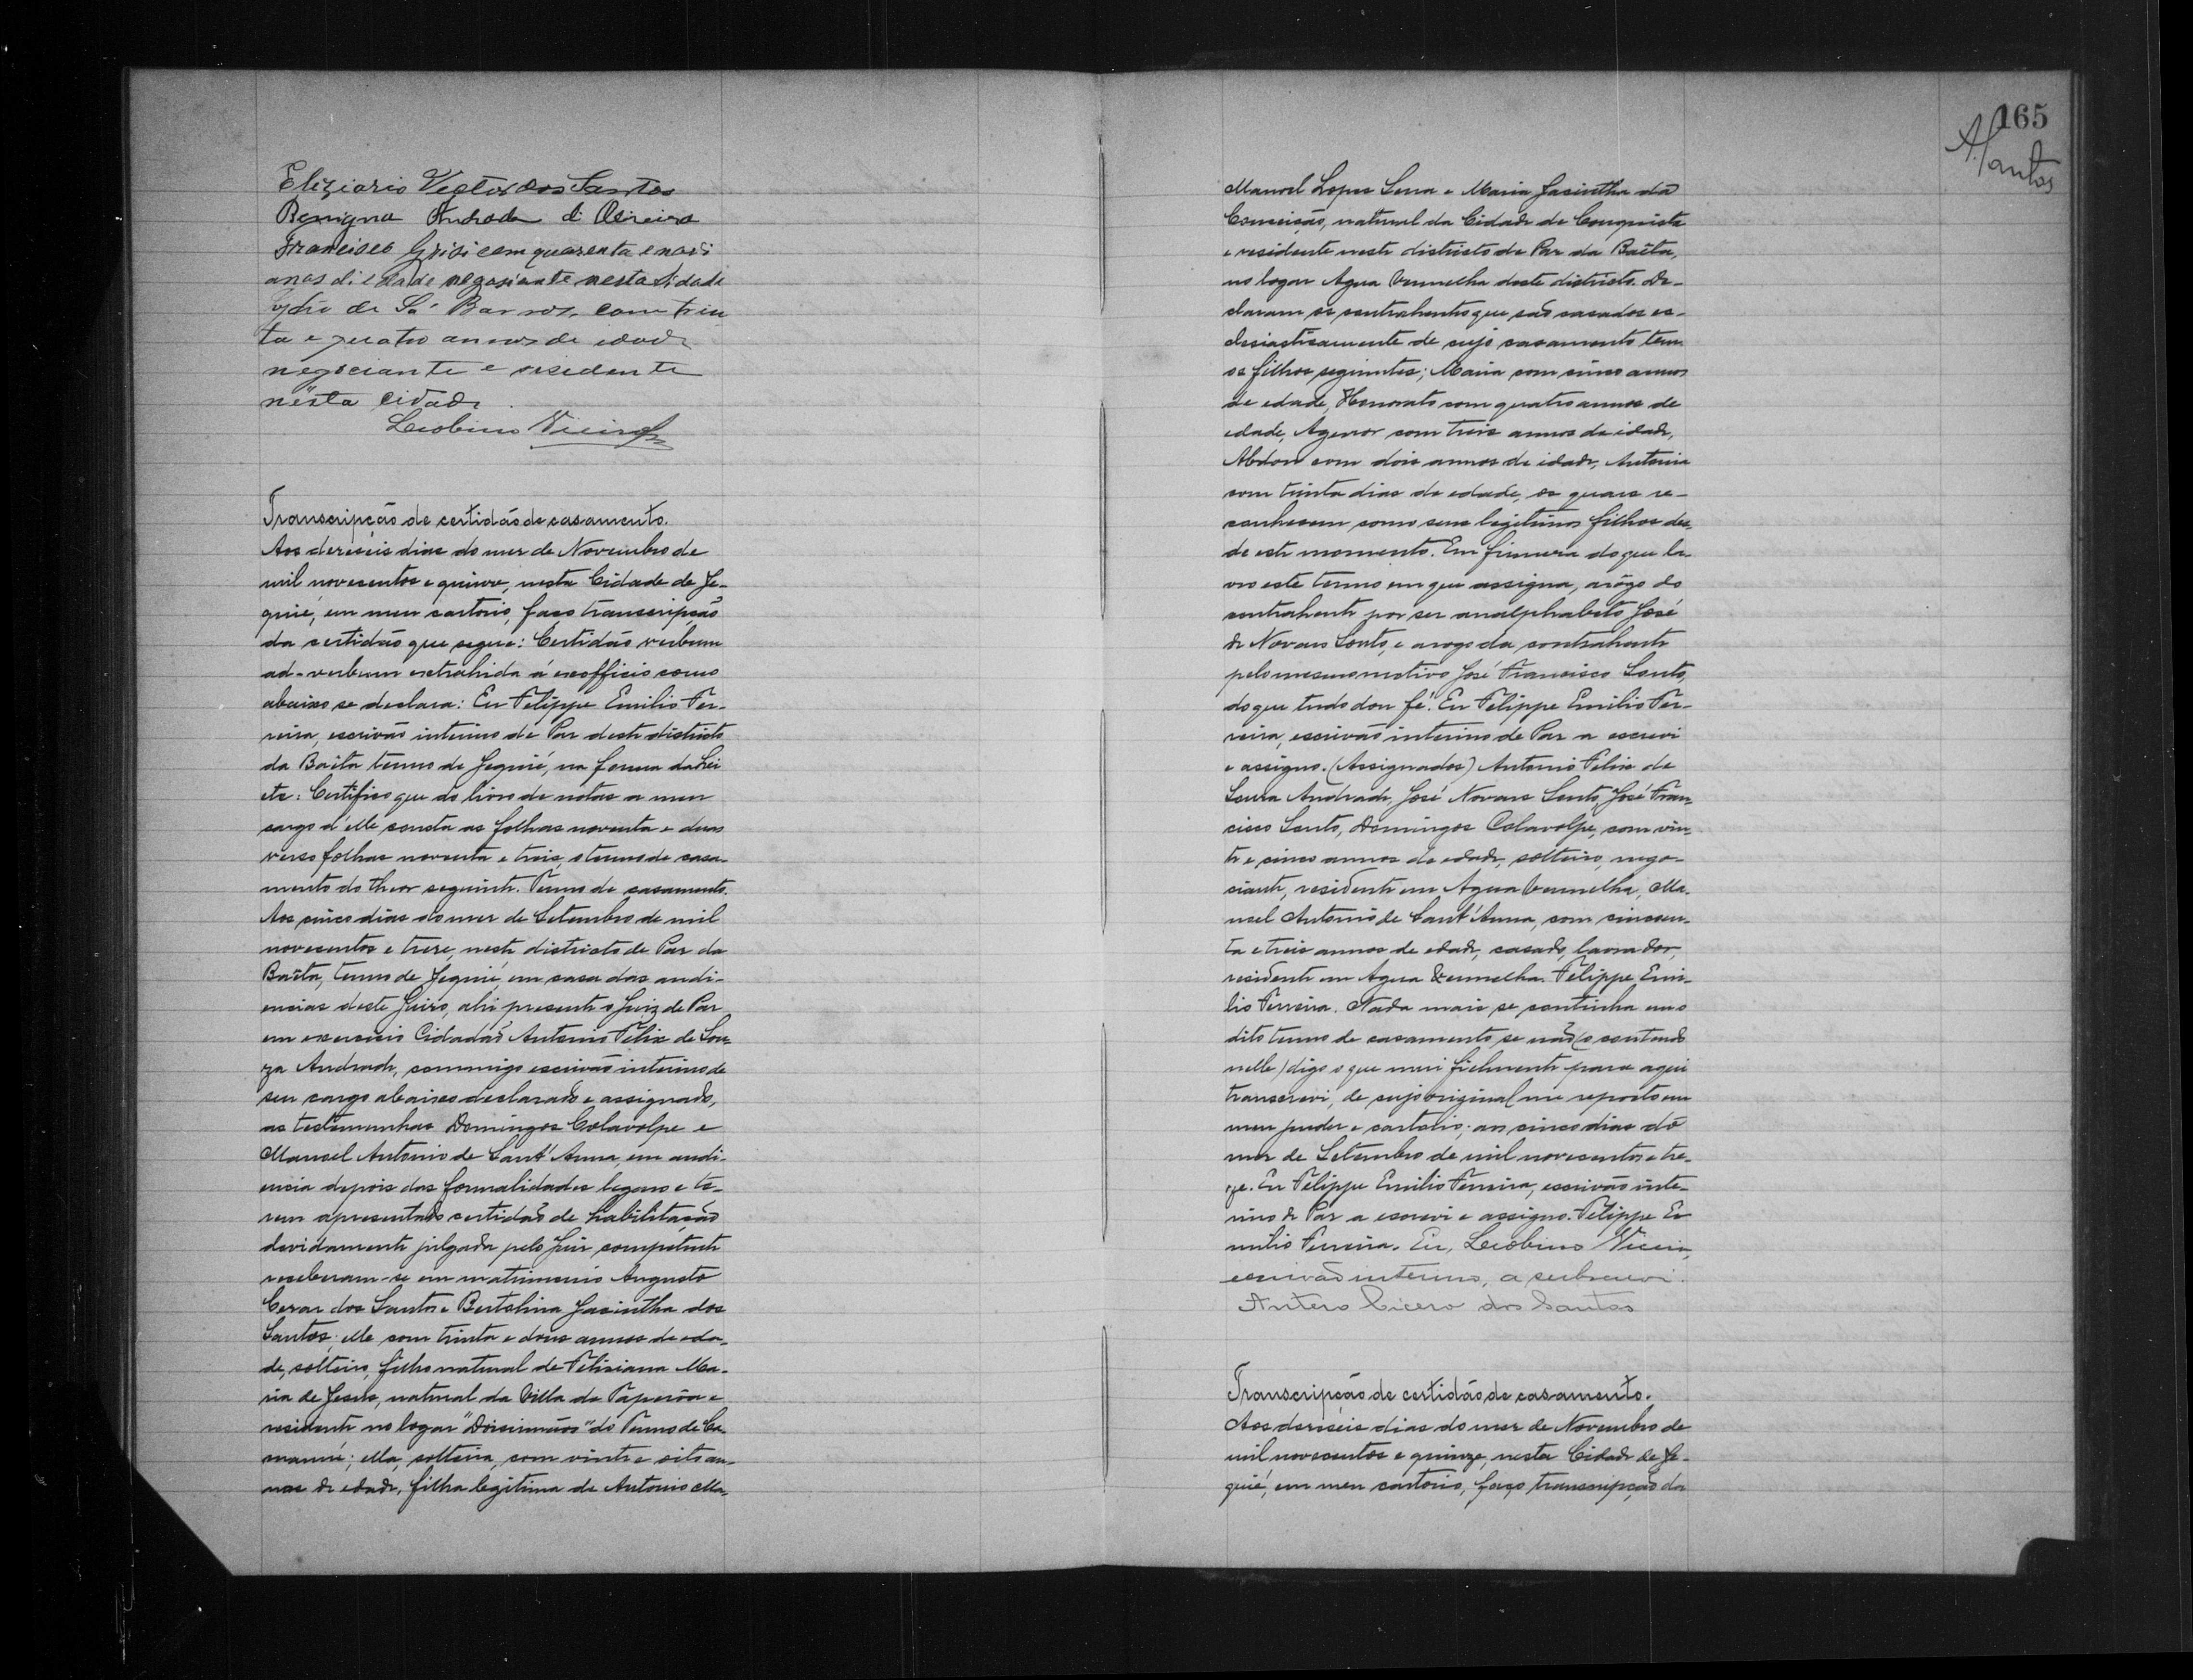 Eliziario Victor dos Santos
Benigna Andrade di Oliveira
Francisco Grisi com quarenta e nove
anos di edade negosiante nesta Sidade
de Sá Barros, com trin
ta e quatro annos de idade
negociante e residente
nesta cidade.
Leobino Vieira
Transcripção de certidão de casamento.
Aos deseseis dias do mez de Novembro de
mil novecentos e quinze, nesta Cidade de Je-
quié, em meu cartorio, faço transcripção
da certidão que segue: Certidão verbum
ad-verbum extrahida á exofficio como
abaixo se declara: Eu Felippe Emilio Fer-
reira, escrivão interino de Paz deste districto
da Baêta termo de Jequié, na forma da Lei
etc: Certifico que do livro de notas a meu
cargo d'elle consta as folhas noventa e duas
verso folhas noventa e trez, o termo de casa-
mento do theor seguinte. Termo de casamento.
Aos cinco dias do mez de Setembro de mil
novecentos e treze, neste districto de Paz da
Baêta, termo de Jequié, em casa das audi-
encias deste Juizo, ahi presente o Juiz de Paz
em exercicio Cidadão Antonio Felix de Sou-
za Andrade, commigo escrivão interino de
seu cargo abaixo declarado e assignado,
as testemunhas Domingos Colavolpe e
Manoel Antonio de Sant'Anna, em audi-
encia depois das formalidades legaes e te-
rem apresentado certidão de habilitação
devidamente julgada pelo Juiz competente
receberam-se em matrimonio Augusto
Cezar dos Santos e Bertolina Jacintha dos
Santos; elle com trinta e dous annos de eda-
de, solteiro, filho natural de Feliciana Ma-
ria de Jesus, natural da Villa de Taperôa e
residente no logar "Doisirmãos" do Termo de Ca-
mamú; ella, solteira, com vinte e oito an-
nos de edade, filha legitima de Antonio Ma-
165
A. Santos
Manoel Lopes Serra e Maria Jacintha da
Conceição, natural da Cidade de Conquista
e residente neste districto de Paz da Baêta,
no logar Agua Vermelha deste districto. De-
claram os contrahentes que são casados ec-
clesiasticamente de cujo casamento tem
os filhos seguintes; Maria com cinco annos
de edade, Honorato com quatro annos de
edade, Agenor com treis annos de idade,
Abdon com dois annos de idade, Antonia
com trinta dias de edade, os quaes re-
conhecem como seus legitimos filhos des-
de este momento. Em firmeza do que la-
vro este termo em que assigna, arôgo do
contrahente por ser analphabeto José
de Novaes Souto, e arogo da contrahente
pelo mesmo motivo José Francisco Souto,
do que tudo dou fé. Eu Felippe Emilio Fer-
reira, escrivão interino de Paz a escrevi
e assigno. (Assignados) Antonio Felix de
Souza Andrade, José Novaes Souto, José Fran-
cisco Souto, Domingos Colavolpe, com vin-
te e cinco annos de edade, solteiro, nego-
ciante, residente em Agua Vermelha, Ma-
noel Antonio de Sant'Anna, com cincoen-
ta e treis annos de edade, casado, lavrador,
residente em Agua Vermelha. Felippe Emi-
lio Ferreira. Nada mais se continha em o
dito termo de casamento se não (o contendo
nelle) digo o que mui fielmente para aqui
transcrevi, de cujo original me reporto em
meu puder e cartorio; aos cinco dias do
mez de Setembro de mil novecentos e tre-
ze. Eu Felippe Emilio Ferreira, escrivão inte-
rino de Paz a escrevi e assigno. Felippe E-
milio Ferreira. Eu, Leobino Vieira,
escrivão interino, a subscrevi.
Antero Cicero dos Santos
Transcripção de certidão de casamento.
Aos deseseis dias do mez de Novembro de
mil novecentos e quinze, nesta Cidade de Je-
quié, em meu cartorio, faço transcripção da